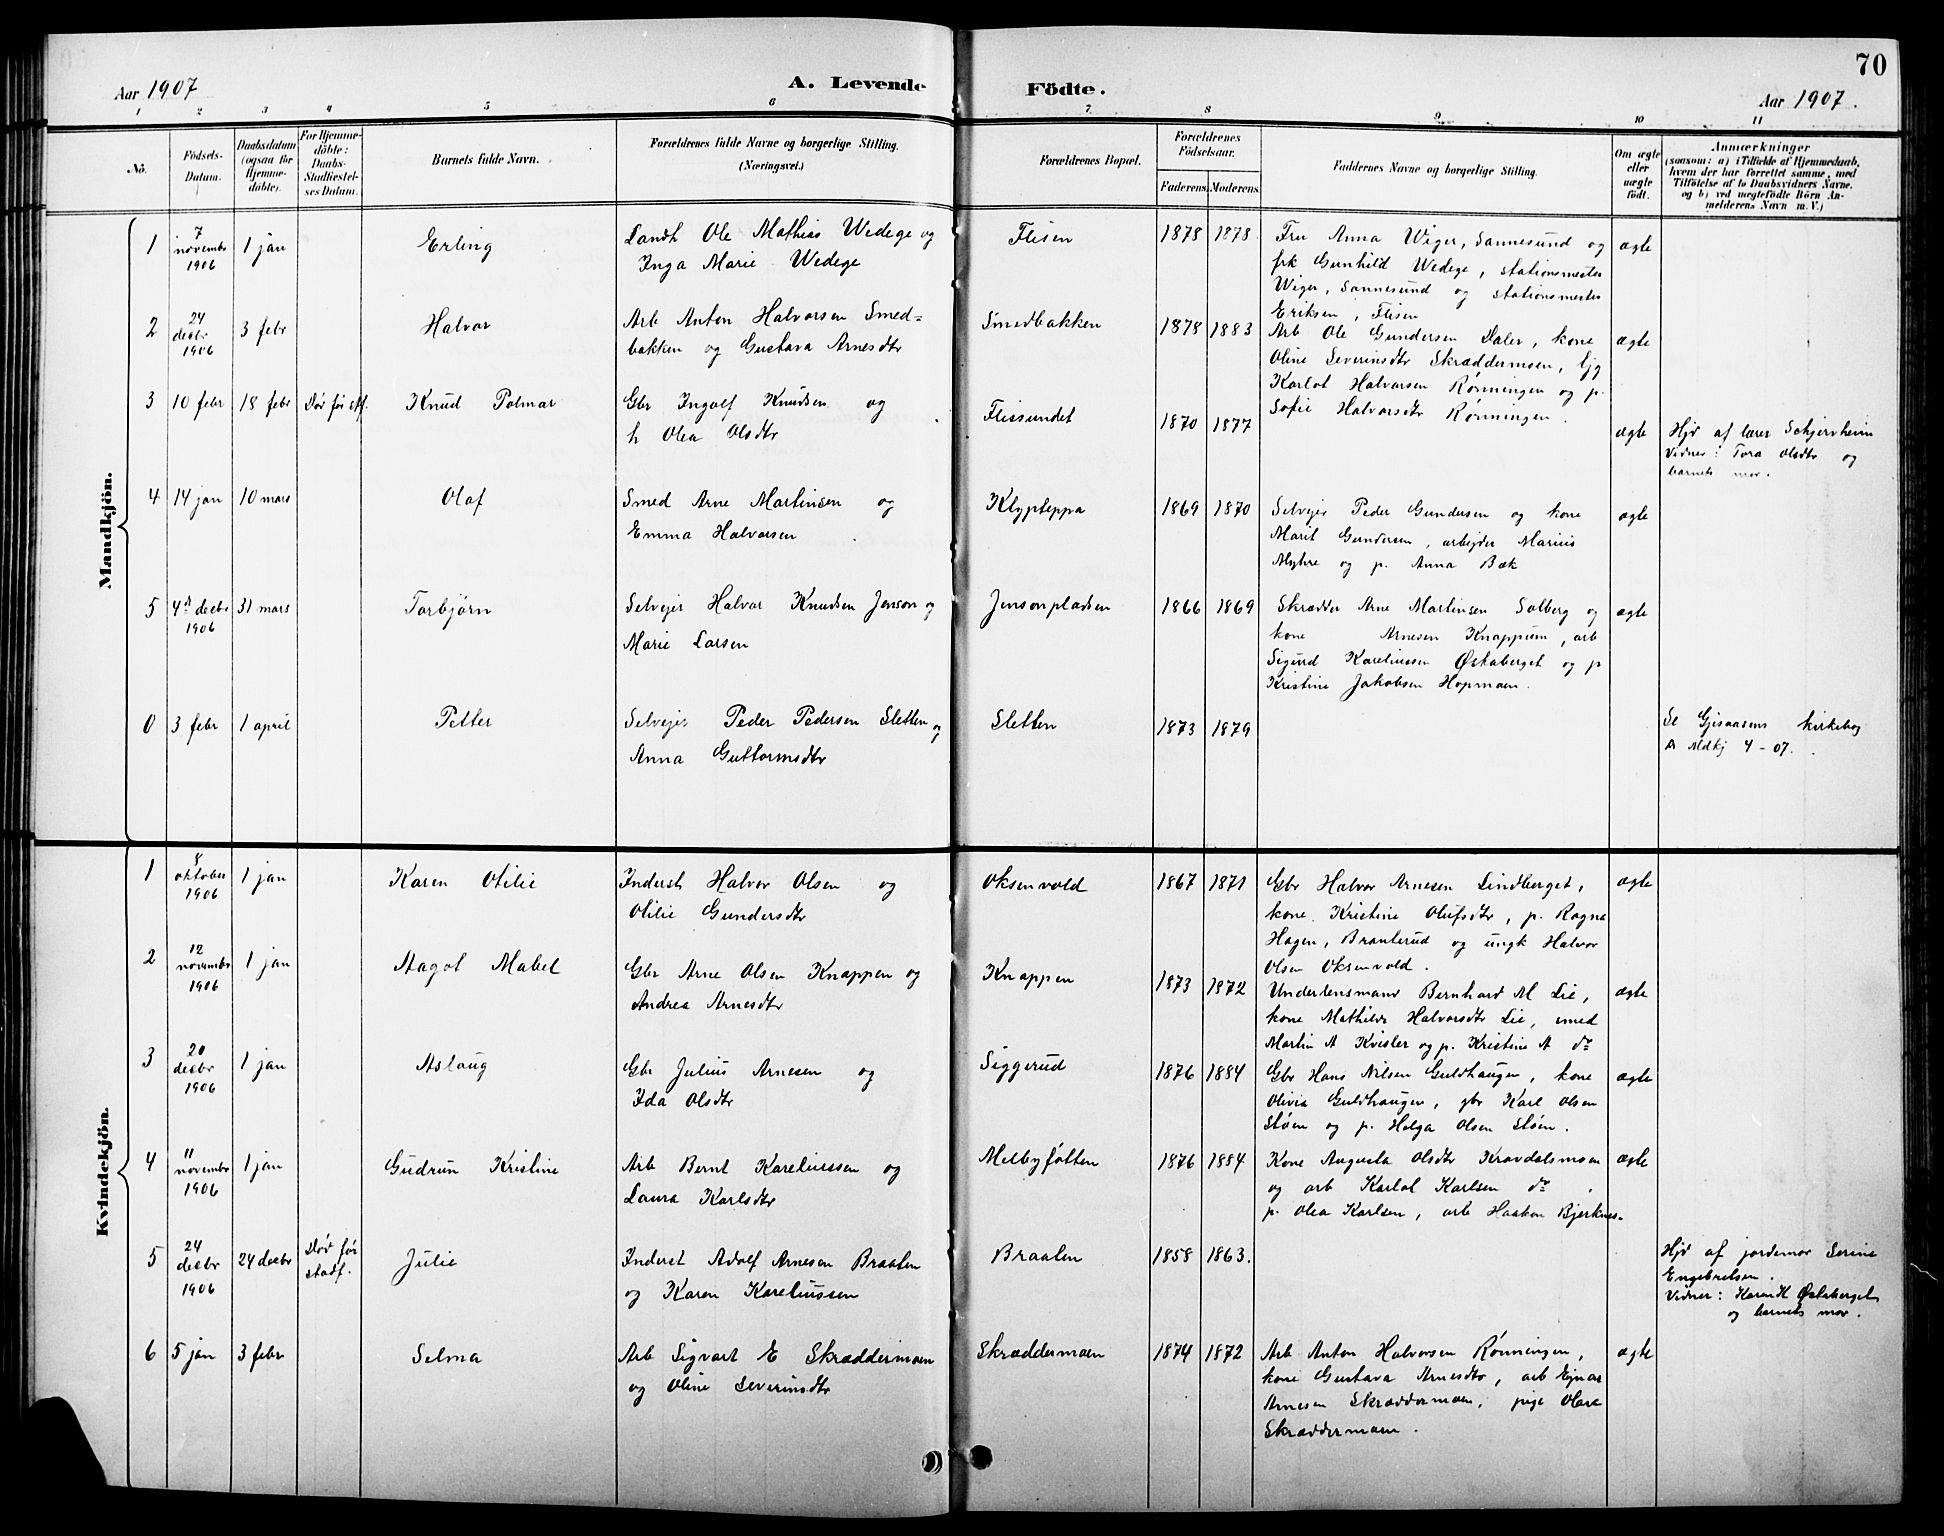 70
Aar 1907
A. Levende
Födte.
Aar 1907.
1 2 3 4 5 6 7 8 9 10 11
Nö.
Födsels-
Datum.
Daabsdatum
(ogsaa for
Hjemme-
döbte).
For Hjemme-
döbte:
Daabs-
Stadfæstel-
ses Datum.
Barnets fulde Navn.
Forældrenes fulde Navne og borgerlige Stilling.
(Næringsvei.)
Forældrenes Bopæl.
Forældrenes
Födselsaar.
Faderens. Moderens.
Faddernes Navne og borgerlige Stilling.
Om ægte
eller
uægte
födt.
Anmærkninger
(saasom: a) i Tilfælde af Hjemmedaab,
hvem der har forrettet samme, med
Tilföielse af to Daabsvidners Navne,
og b) ved uægtefödte Börn An-
melderens Navn m. V.)
Mandkjön.
1
7
novembr
1906
1 jan
Erling
Landh Ole Mathias Wedege og
Inga Marie Wedege
Flisen
1878 1878
Fru Anna Wiger, Sannesund og
frk Gunhild Wedege, stationsmester
Wiger, Sannesund og stationsmester
Eriksen, Flisen
ægte
2
24
decbr
1906
3 febr
Halvor
Arb Anton Halvorsen Smed-
bakken og Gustava Arnesdtr
Smedbakken
1878 1883
Arb Ole Gundersen Daler, kone
Oline Severinsdtr Skræddermoen, Gjg
Karlot Halvorsen Rønningen og p.
Sofie Halvorsdtr Rønningen.
ægte
3
10 febr
18 febr
Død før stf.
Knud Palmar
Gbr Ingolf Knudsen og
h Olea Olsdtr
Flissundet
1870 1877
ægte
Hjd af lærer Schjervheim
Vidner: Tora Olsdtr og
barnets mor.
4
14 jan
10 mars
Olaf
Smed Arne Martinsen og
Emma Halvorsen
Klypteppa
1869 1870
Selveier Peder Gundersen og kone
Marit Gundersen, arbeider Marius
Myhre og p. Anna Bæk
ægte
5
4d decbr
1906
31 mars
Torbjørn
Selveier Halvor Knudsen Jenson og
Marie Larsen
Jensonpladsen
1866 1869
Skrædder Arne Martinsen Solberg og
kone Arnesen Knappum, arb
Sigurd Kareliussen Østaberget og p
Kristine Jakobsen Hopmoen.
ægte
0
3 febr
1 april
Petter
Selveier Peder Pedersen Sletten og
Anna Guttormsdtr
Sletten
1873 1879
Se Gjesaasens kirkebog
A Mdkj 4-07.
Kvindekjön.
1
8
oktober
1906
1 jan
Karen Otilie
Inderst Halvor Olsen og
Otilie Gundersdtr
Oksenvold
1867 1871
Gbr Halvor Arnesen Lindberget,
kone Kristine Olufsdtr, p. Ragna
Hagen, Branterud og ungk Halvor
Olsen Oksenvold.
ægte
2
12
novembr
1906
1 jan
Aagot Mabel
Gbr Arne Olsen Knappen og
Andrea Arnesdtr
Knappen
1873 1872
Underlensmand Bernhard M Lie,
kone Mathilde Halvorsdtr Lie, smed
Martin A Kvisler og p. Kristine A do
ægte
3
20
decbr
1906
1 jan
Aslaug
Gbr Julius Arnesen og
Ida Olsdtr
Siggerud
1876 1884
Gbr Hans Nilsen Guldhaugen, kone
Olivia Guldhaugen, gbr Karl Olsen
Støen og p. Helga Olsen Støen.
ægte
4
11
novembr
1906
1 jan
Gudrun Kristine
Arb Bernt Kareliussen og
Laura Karlsdtr
Melbyfotten
1876 1884
Kone Augusta Olsdtr Kravdalsmoen
og arb Karlot Karlsen do,
p. Olea Karlsen, arb Haakon Bjerknes.
ægte
5
24
decbr
1906
24 decbr
Død før
stadf.
Julie
Inderst Adolf Arnesen Braaten
og Karen Kareliussen
Braaten
1858 1863.
Hjd af jordemor Serine
Engebretsen.
Vidner: Karen K Østaberget
og barnets mor.
6
5 jan
3 febr
Selma
Arb Sigvart E Skræddermoen
og Oline Severinsdtr
Skræddermoen
1874 1872
Arb Anton Halvorsen Rønningen,
kone Gustava Arnesdtr, arb Ejnar
Arnesen Skræddermoen, pige Olave
Skræddermoen.
ægte